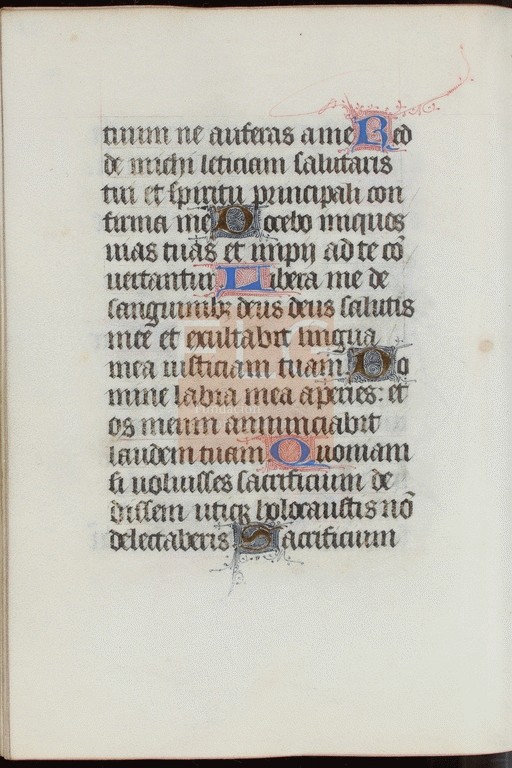 tuum ne auferas a me Red
de michi leticiam salutaris
tui et spiritu principali con
firma me Docebo iniquos
uias tuas et impij ad te cō
uertantur Libera me de
sanguinibꝫ deus deus salutis
mee et exultabit lingua
mea iusticiam tuam Do
mine labia mea aperies: et
os meum annunciabit
laudem tuam Quoniam
si uoluisses sacrificium de
dissem utiqꝫ holocaustis nō
delectaberis Sacrificium
FLG
Fundación